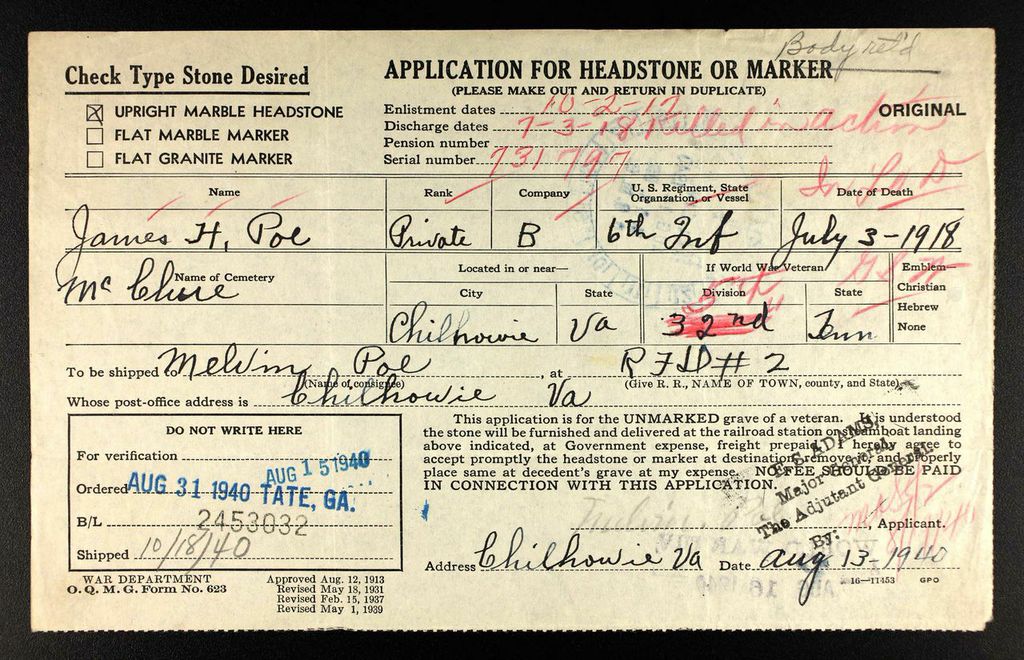 Body ret'd
Check Type Stone Desired
☒ UPRIGHT MARBLE HEADSTONE
☐ FLAT MARBLE MARKER
☐ FLAT GRANITE MARKER
APPLICATION FOR HEADSTONE OR MARKER
(PLEASE MAKE OUT AND RETURN IN DUPLICATE)
ORIGINAL
Enlistment dates 10-2-17
Discharge dates 7-3-18 Killed in action
Pension number
Serial number 731 797
In L of D
Name
James H. Poe
Rank
Private
Company
B
U. S. Regiment, State Organzation, or Vessel
6th Inf
Date of Death
July 3-1918
Name of Cemetery
Mc Clure
Located in or near—
City
Chilhowie
State
Va
If World War Veteran
Division
5th
32nd
State
Tenn
Emblem—
Christian
Hebrew
None
To be shipped to Melvin Poe, at R F D # 2
(Name of consignee) (Give R. R., NAME OF TOWN, county, and State)
Whose post-office address is Chilhowie Va
DO NOT WRITE HERE
For verification
AUG 15 1940
Ordered AUG 31 1940 TATE, GA.
B/L 2453032
Shipped 10/18/40
This application is for the UNMARKED grave of a veteran. It is understood
the stone will be furnished and delivered at the railroad station or steamboat landing
above indicated, at Government expense, freight prepaid. I hereby agree to
accept promptly the headstone or marker at destination, remove it and properly
place same at decedent's grave at my expense. NO FEE SHOULD BE PAID
IN CONNECTION WITH THIS APPLICATION.
E. S. ADAMS,
Major General,
The Adjutant General.
By:
, Applicant.
Address Chilhowie Va Date Aug 13-1940
WAR DEPARTMENT
O. Q. M. G. Form No. 623
Approved Aug. 12, 1913
Revised May 18, 1931
Revised Feb. 15, 1937
Revised May 1, 1939
16—11453 GPO